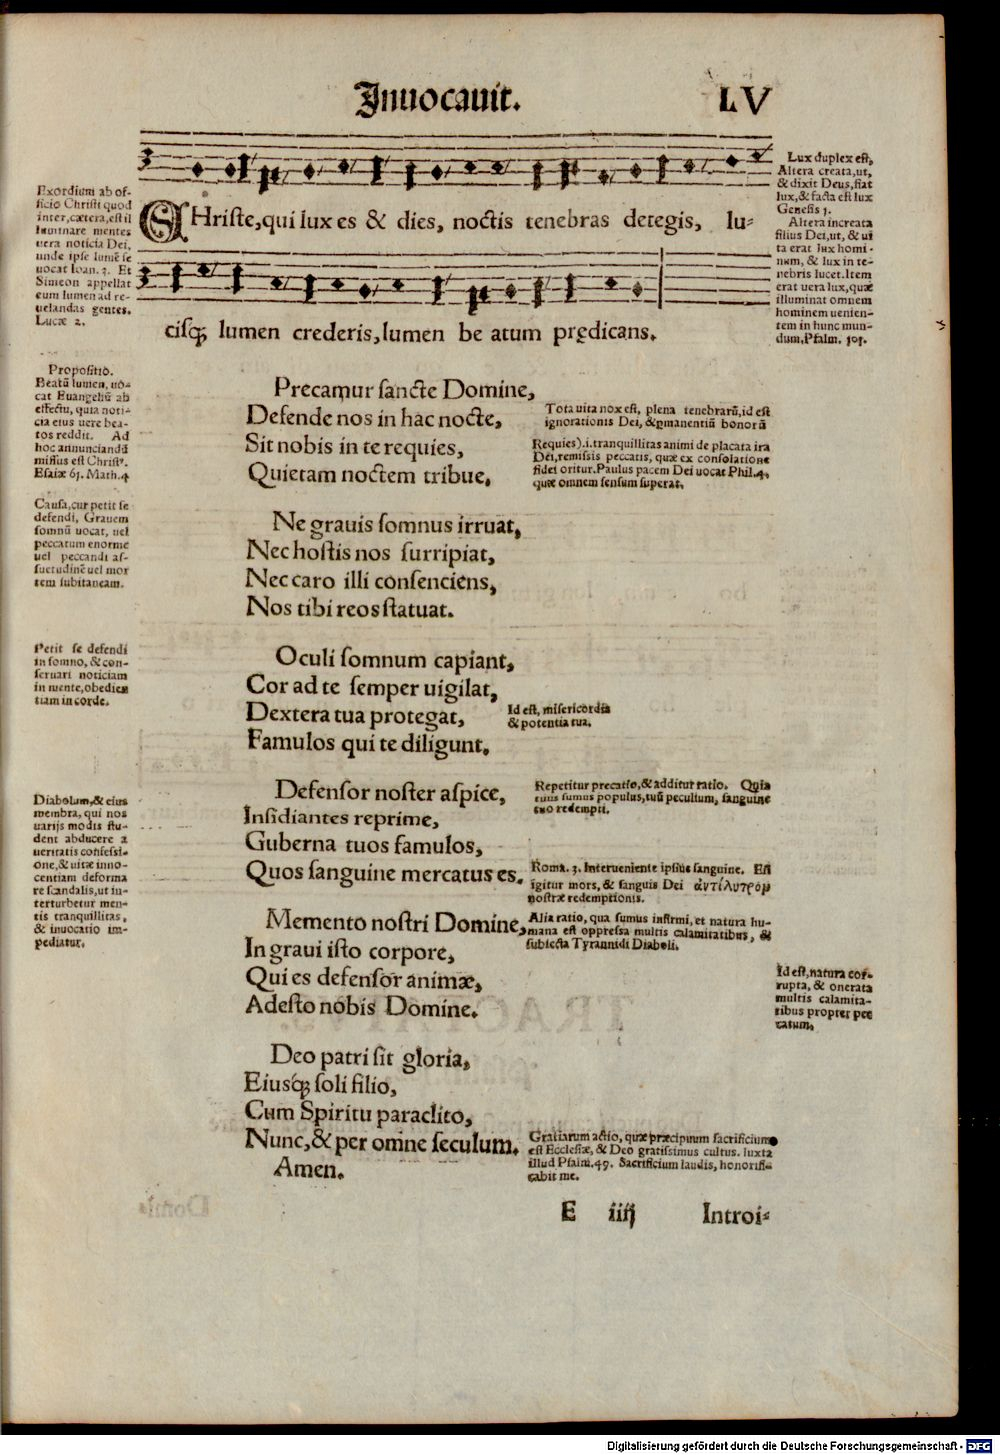 Inuocauit.
LV
Exordium ab of-
ficio Christi quod
inter, cætera, est il
luminare mentes
uera noticia Dei,
unde ipse lumē se
uocat Ioan. 3. Et
Simeon appellat
eum lumen ad re-
uelandas gentes.
Lucæ 2.
CHriste, qui lux es & dies, noctis tenebras detegis, lu-
cisq́; lumen crederis, lumen be atum prędicans.
Lux duplex est,
Altera creata, ut,
& dixit Deus, fiat
lux, & facta est lux
Genesis 1.
Altera increata
filius Dei, ut, & ui
ta erat lux homi-
num, & lux in te-
nebris lucet. Item
erat uera lux, quæ
illuminat omnem
hominem uenien-
tem in hunc mun-
dum, Psalm. 101.
Propositio.
Beatū lumen, uo-
cat Euangeliū ab
effectu, quia noti-
cia eius uere bea-
tos reddit. Ad
hoc annunciandū
missus est Christꝰ.
Esaiæ 61. Math. 4
Precamur sancte Domine,
Defende nos in hac nocte,
Sit nobis in te requies,
Quietam noctem tribue.
Tota uita nox est, plena tenebrarū, id est
ignorationis Dei, & ꝑmanentiū bonorū
Requies) .i. tranquillitas animi de placata ira
Dei, remissis peccatis, quæ ex consolatione
fidei oritur. Paulus pacem Dei uocat Phil. 4.
quæ omnem sensum superat.
Causa, cur petit se
defendi, Grauem
somnū uocat, uel
peccatum enorme
uel peccandi as-
suetudinē uel mor
tem subitaneam.
Ne grauis somnus irruat,
Nec hostis nos surripiat,
Nec caro illi consenciens,
Nos tibi reos statuat.
Petit se defendi
in somno, & con-
seruari noticiam
in mente, obedien
tiam in corde.
Oculi somnum capiant,
Cor ad te semper uigilat,
Dextera tua protegat,
Famulos qui te diligunt.
Id est, misericordia
& potentia tua.
Diabolum, & eius
membra, qui nos
uarijs modis stu-
dent abducere a
ueritatis confessi-
one, & uitæ inno-
centiam deforma
re scandalis, ut in-
terturbetur men-
tis tranquillitas,
& inuocatio im-
pediatur.
Defensor noster aspice,
Insidiantes reprime,
Guberna tuos famulos,
Quos sanguine mercatus es.
Repetitur precatio, & additur ratio. Quia
tuus sumus populus, tuū peculium, sanguine
tuo redempti.
Roma. 3. Interueniente ipsius sanguine. Est
igitur mors, & sanguis Dei ἀντίλυτρον
nostræ redemptionis.
Memento nostri Domine,
In graui isto corpore,
Qui es defensor animæ,
Adesto nobis Domine.
Alia ratio, qua sumus infirmi, et natura hu-
mana est oppressa multis calamitatibus, &
subiecta Tyrannidi Diaboli.
Id est, natura cor-
rupta, & onerata
multis calamita-
tibus propter pec
catum.
Deo patri sit gloria,
Eiusq́; soli filio,
Cum Spiritu paraclito,
Nunc, & per omne seculum.
Amen.
Gratiarum actio, quæ præcipuum sacrificium
est Ecclesiæ, & Deo gratissimus cultus. Iuxta
illud Psalm. 49. Sacrificium laudis, honorifi-
cabit me.
E iiij
Introi-
Digitalisierung gefördert durch die Deutsche Forschungsgemeinschaft - DFG